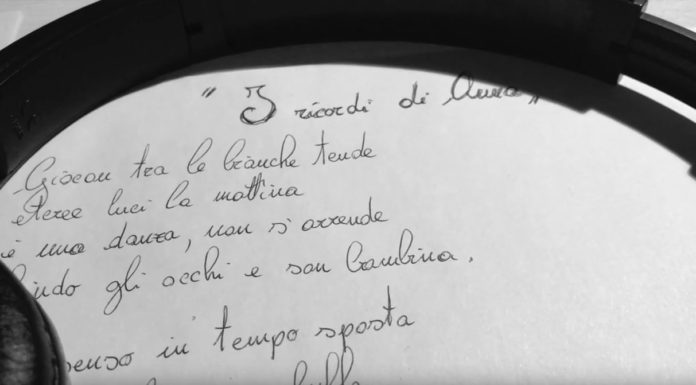 " I ricordi di Anna "
Giocan tra le bianche tende
eteree luci la mattina
è una danza, non si arrende
gli occhi e son bambina.
penso in tempo sposta